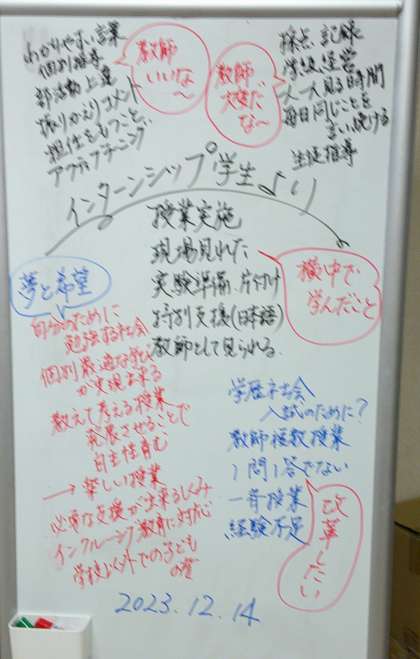 わかりやすい授業
個別指導
部活動上達
振りかえりコメント
担任をもつこと
アクティブラーニング
教師
いいな
〜
教師、
大変だ
な〜
採点 記録
学級運営
一人一人見る時間
毎日同じことを
言い続ける
生徒指導
インターンシップ学生より
授業実施
現場見れた
実験準備、片付け
特別支援(日本語)
教師として見られる
横中で
学んだこと
夢と希望
自分のために
勉強する社会
個別最適な学び
が実現出来る
教えて考える授業
発展させることで
自主性育む
→楽しい授業
必要な支援が出来るしくみ
インクルーシブ教育に対応
学校以外での子ども
の姿
学歴社会
入試のために?
教師種教授業
1問1答でない
一斉授業
経験不足
改革したい
2023.12.14